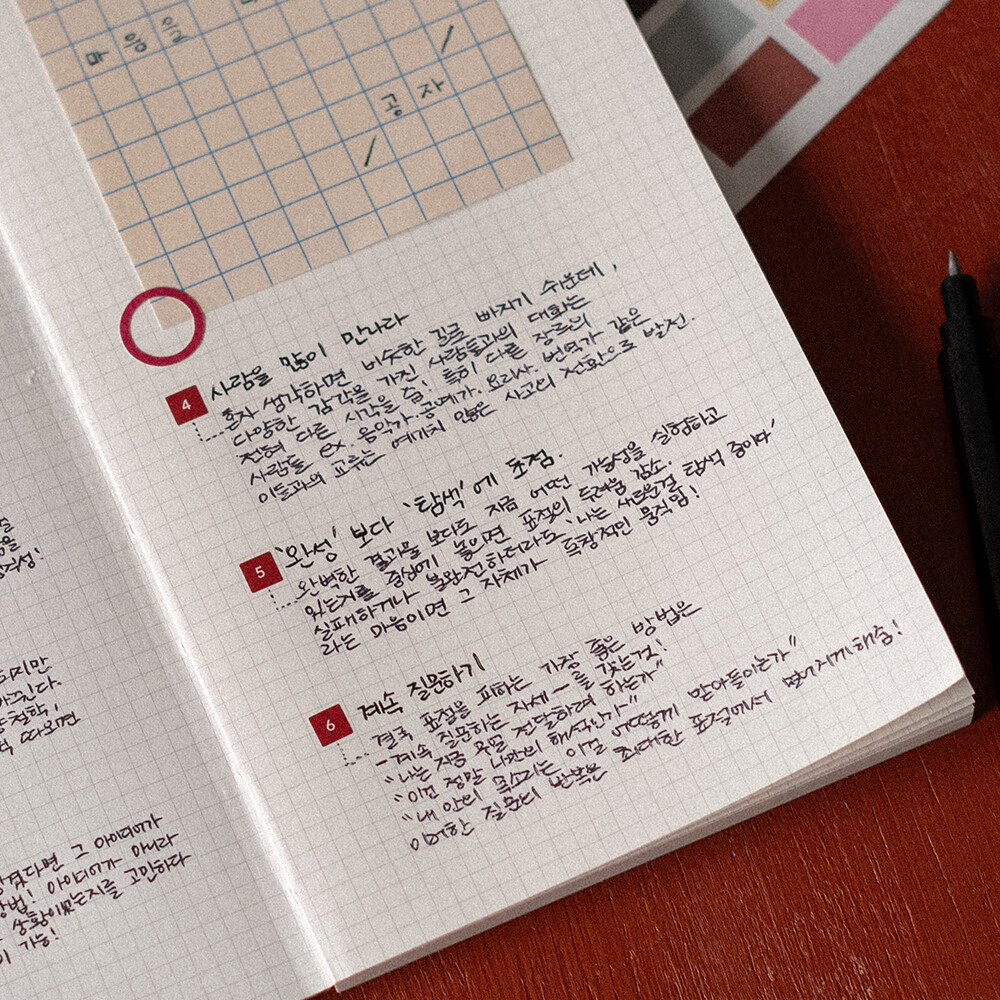 공 자
4 사람을 많이 만나라
혼자 생각하면 비슷한 길로 빠지기 쉬운데,
다양한 감각을 가진 사람들과의 대화는
전혀 다른 시각을 줌! 특히 다른 장르의
사람들 ex. 음악가. 공예가. 요리사. 번역가 같은
이들과의 교류는 예기치 않은 사고의 전환으로 발전.
5 '완성' 보다 '탐색'에 초점.
완벽한 결과물 보다도 지금 어떤 가능성을 실험하고
있는지를 중심에 놓으면 표절의 두려움 감소.
실패하거나 불완전하더라도 '나는 새로운걸 탐색 중이다'
라는 마음이면 그 자체가 독창적인 움직임!
6 계속 질문하기
결국 표절을 피하는 가장 좋은 방법은
- 계속 질문하는 자세 - 를 갖는것!
"나는 지금 무얼 전달하려 하는가"
"이건 정말 나만의 해석인가"
"내 안의 목소리는 이걸 어떻게 받아들이는가"
이러한 질문의 반복은 최대한 표절에서 멀어지게해줌!
다면 그 아이디어가
방법! 아이디어가 아니라
상황이었는지를 고민하다
가능!